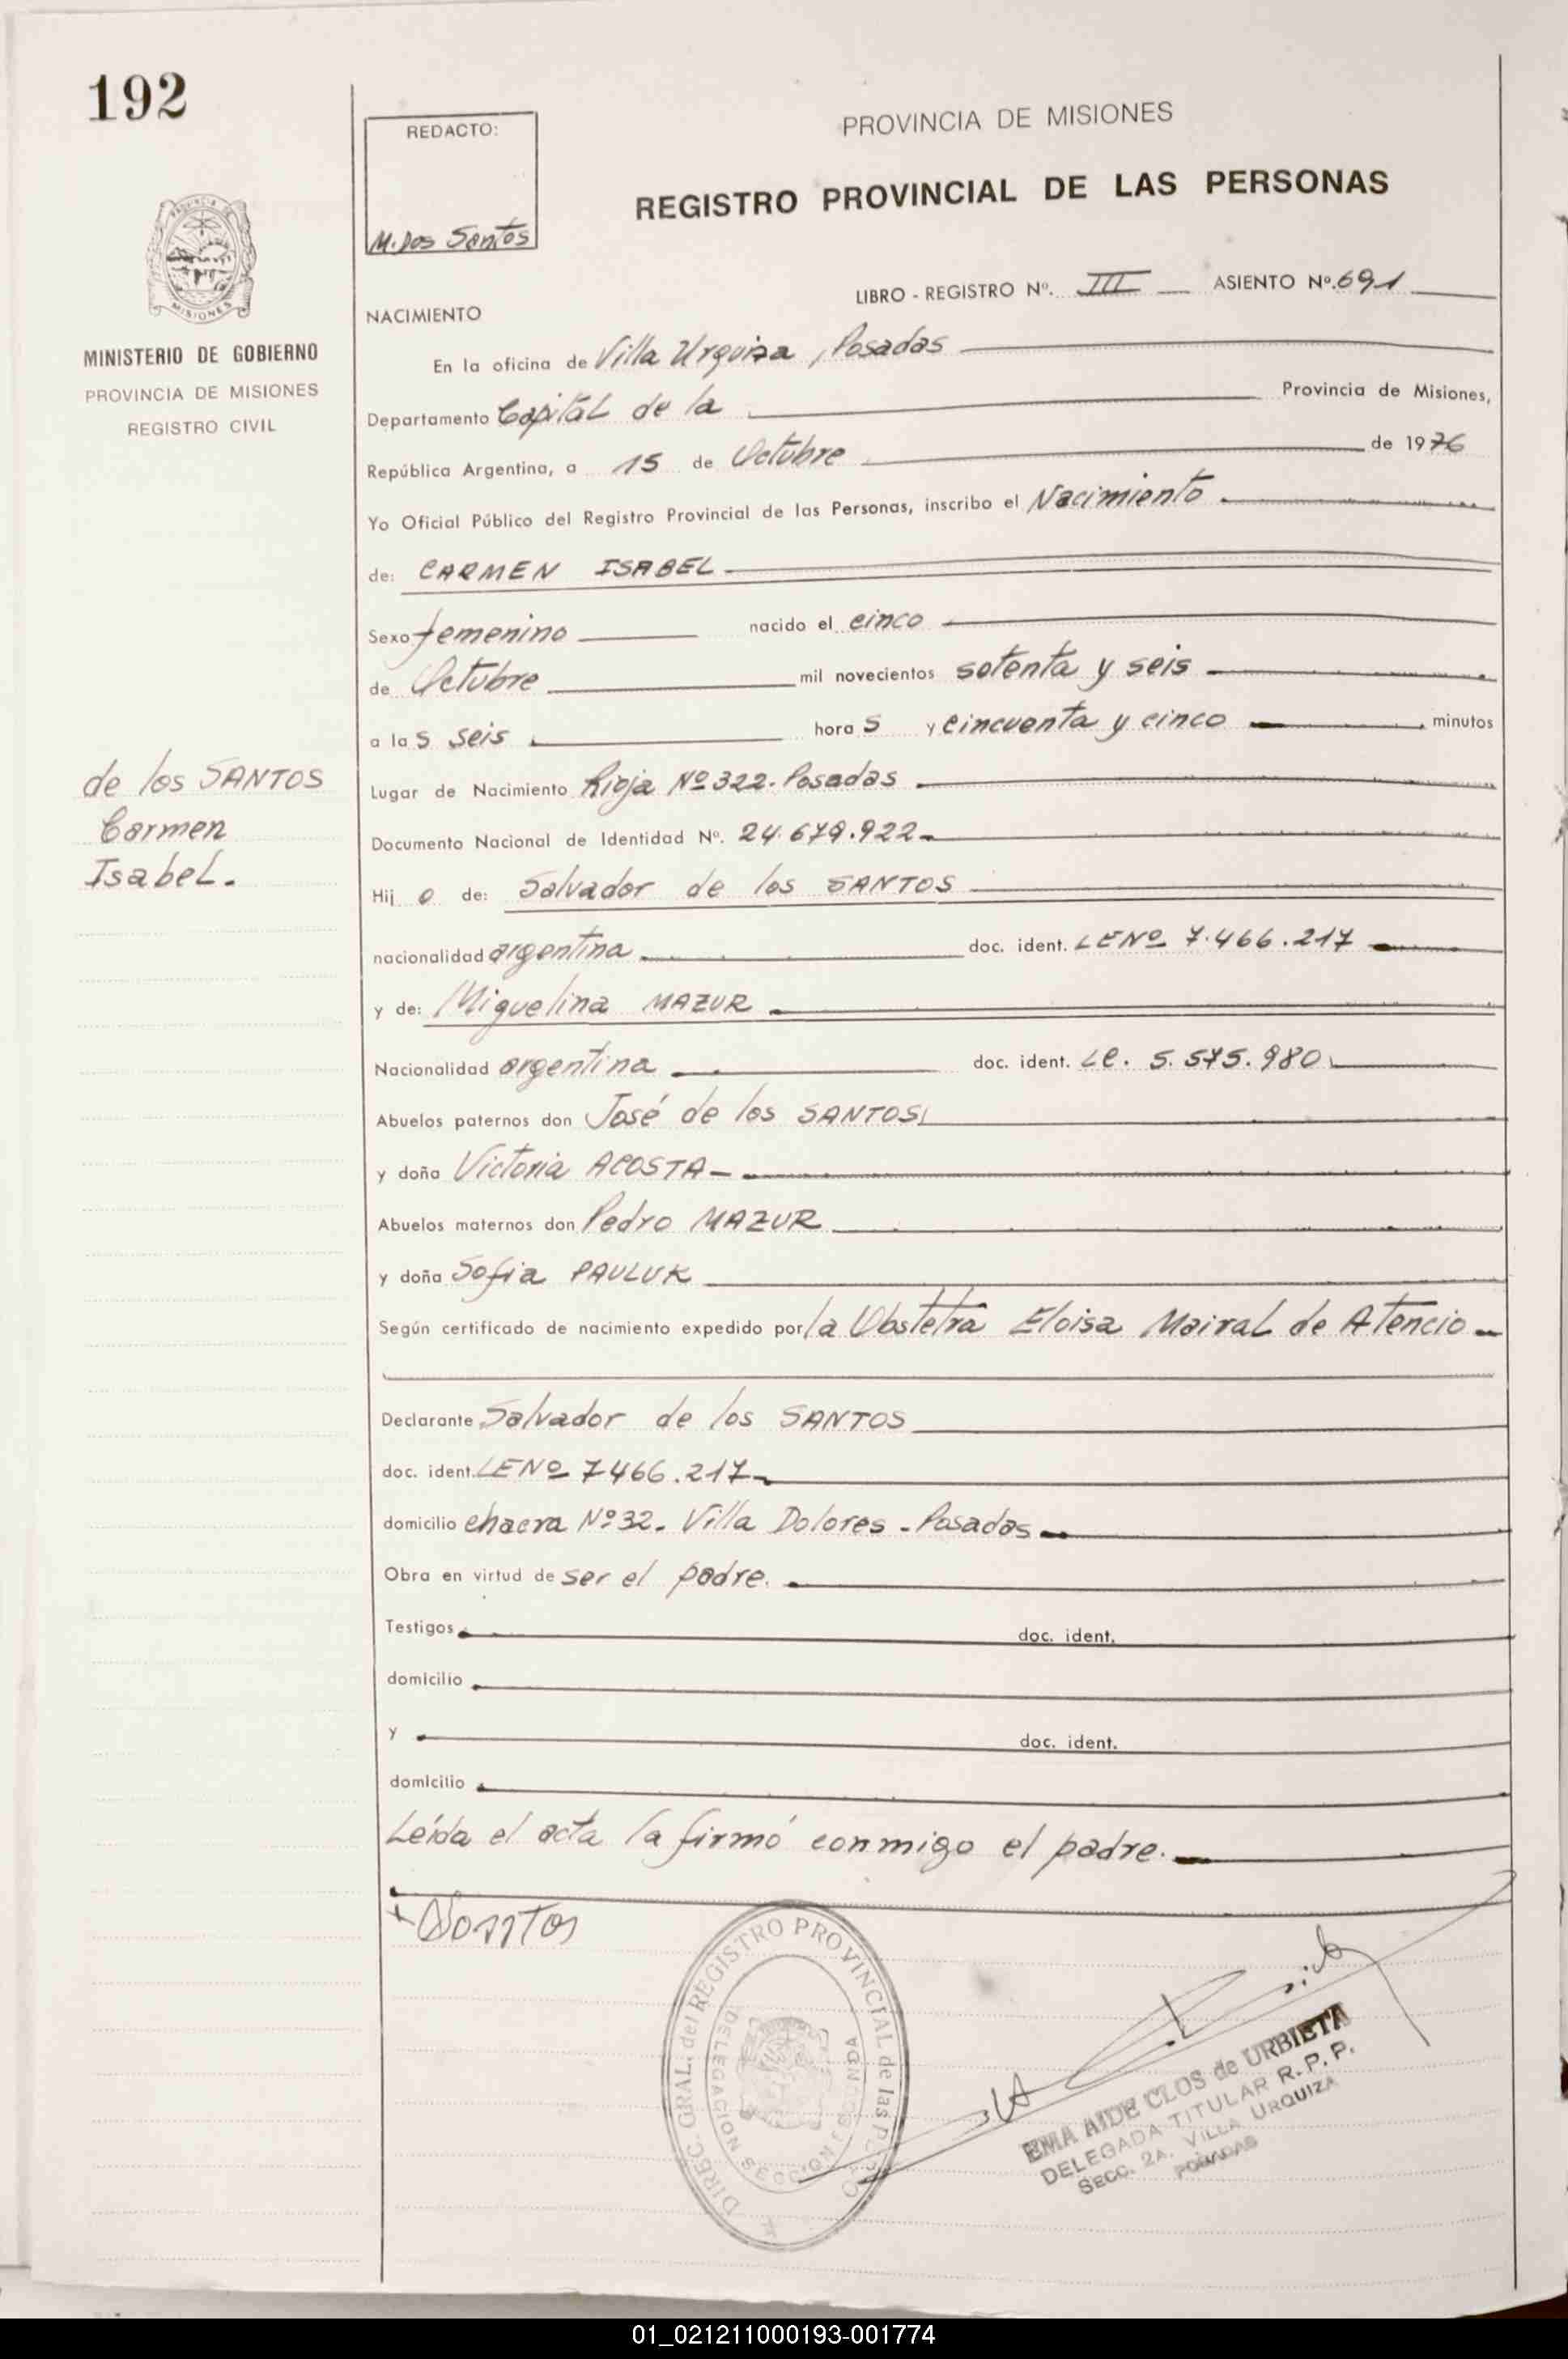 192
REDACTO:
M. Dos Santos
PROVINCIA DE MISIONES
REGISTRO PROVINCIAL DE LAS PERSONAS
MINISTERIO DE GOBIERNO
PROVINCIA DE MISIONES
REGISTRO CIVIL
LIBRO - REGISTRO Nº. III ASIENTO Nº. 691
NACIMIENTO
En la oficina de Villa Urquiza, Posadas
Departamento Capital de la Provincia de Misiones,
República Argentina, a 15 de Octubre de 1976
Yo Oficial Público del Registro Provincial de las Personas, inscribo el Nacimiento
de: CARMEN ISABEL
Sexo femenino nacido el cinco
de Octubre mil novecientos setenta y seis
a las seis horas y cincuenta y cinco minutos
de los SANTOS
Carmen
Isabel.
Lugar de Nacimiento Rioja Nº 322. Posadas
Documento Nacional de Identidad Nº. 24.679.922
Hij o de: Salvador de los SANTOS
nacionalidad argentina doc. ident. LE Nº 7.466.217
y de: Miguelina MAZUR
Nacionalidad argentina doc. ident. LC. 5.575.980
Abuelos paternos don José de los SANTOS
y doña Victoria ACOSTA
Abuelos maternos don Pedro MAZUR
y doña Sofia PAULUK
Según certificado de nacimiento expedido por la Obstetra Eloisa Mairal de Atencio
Declarante Salvador de los SANTOS
doc. ident. LE Nº 7466.217
domicilio chacra Nº 32. Villa Dolores - Posadas
Obra en virtud de ser el padre.
Testigos doc. ident.
domicilio
y doc. ident.
domicilio
Leída el acta la firmó conmigo el padre.
DIREC. GRAL. del REGISTRO PROVINCIAL de las
DELEGACION SECCION SEGUNDA
EMA AIDE CLOS de URBIETA
DELEGADA TITULAR R.P.P.
SECC. 2A. VILLA URQUIZA
POSADAS
01_021211000193-001774